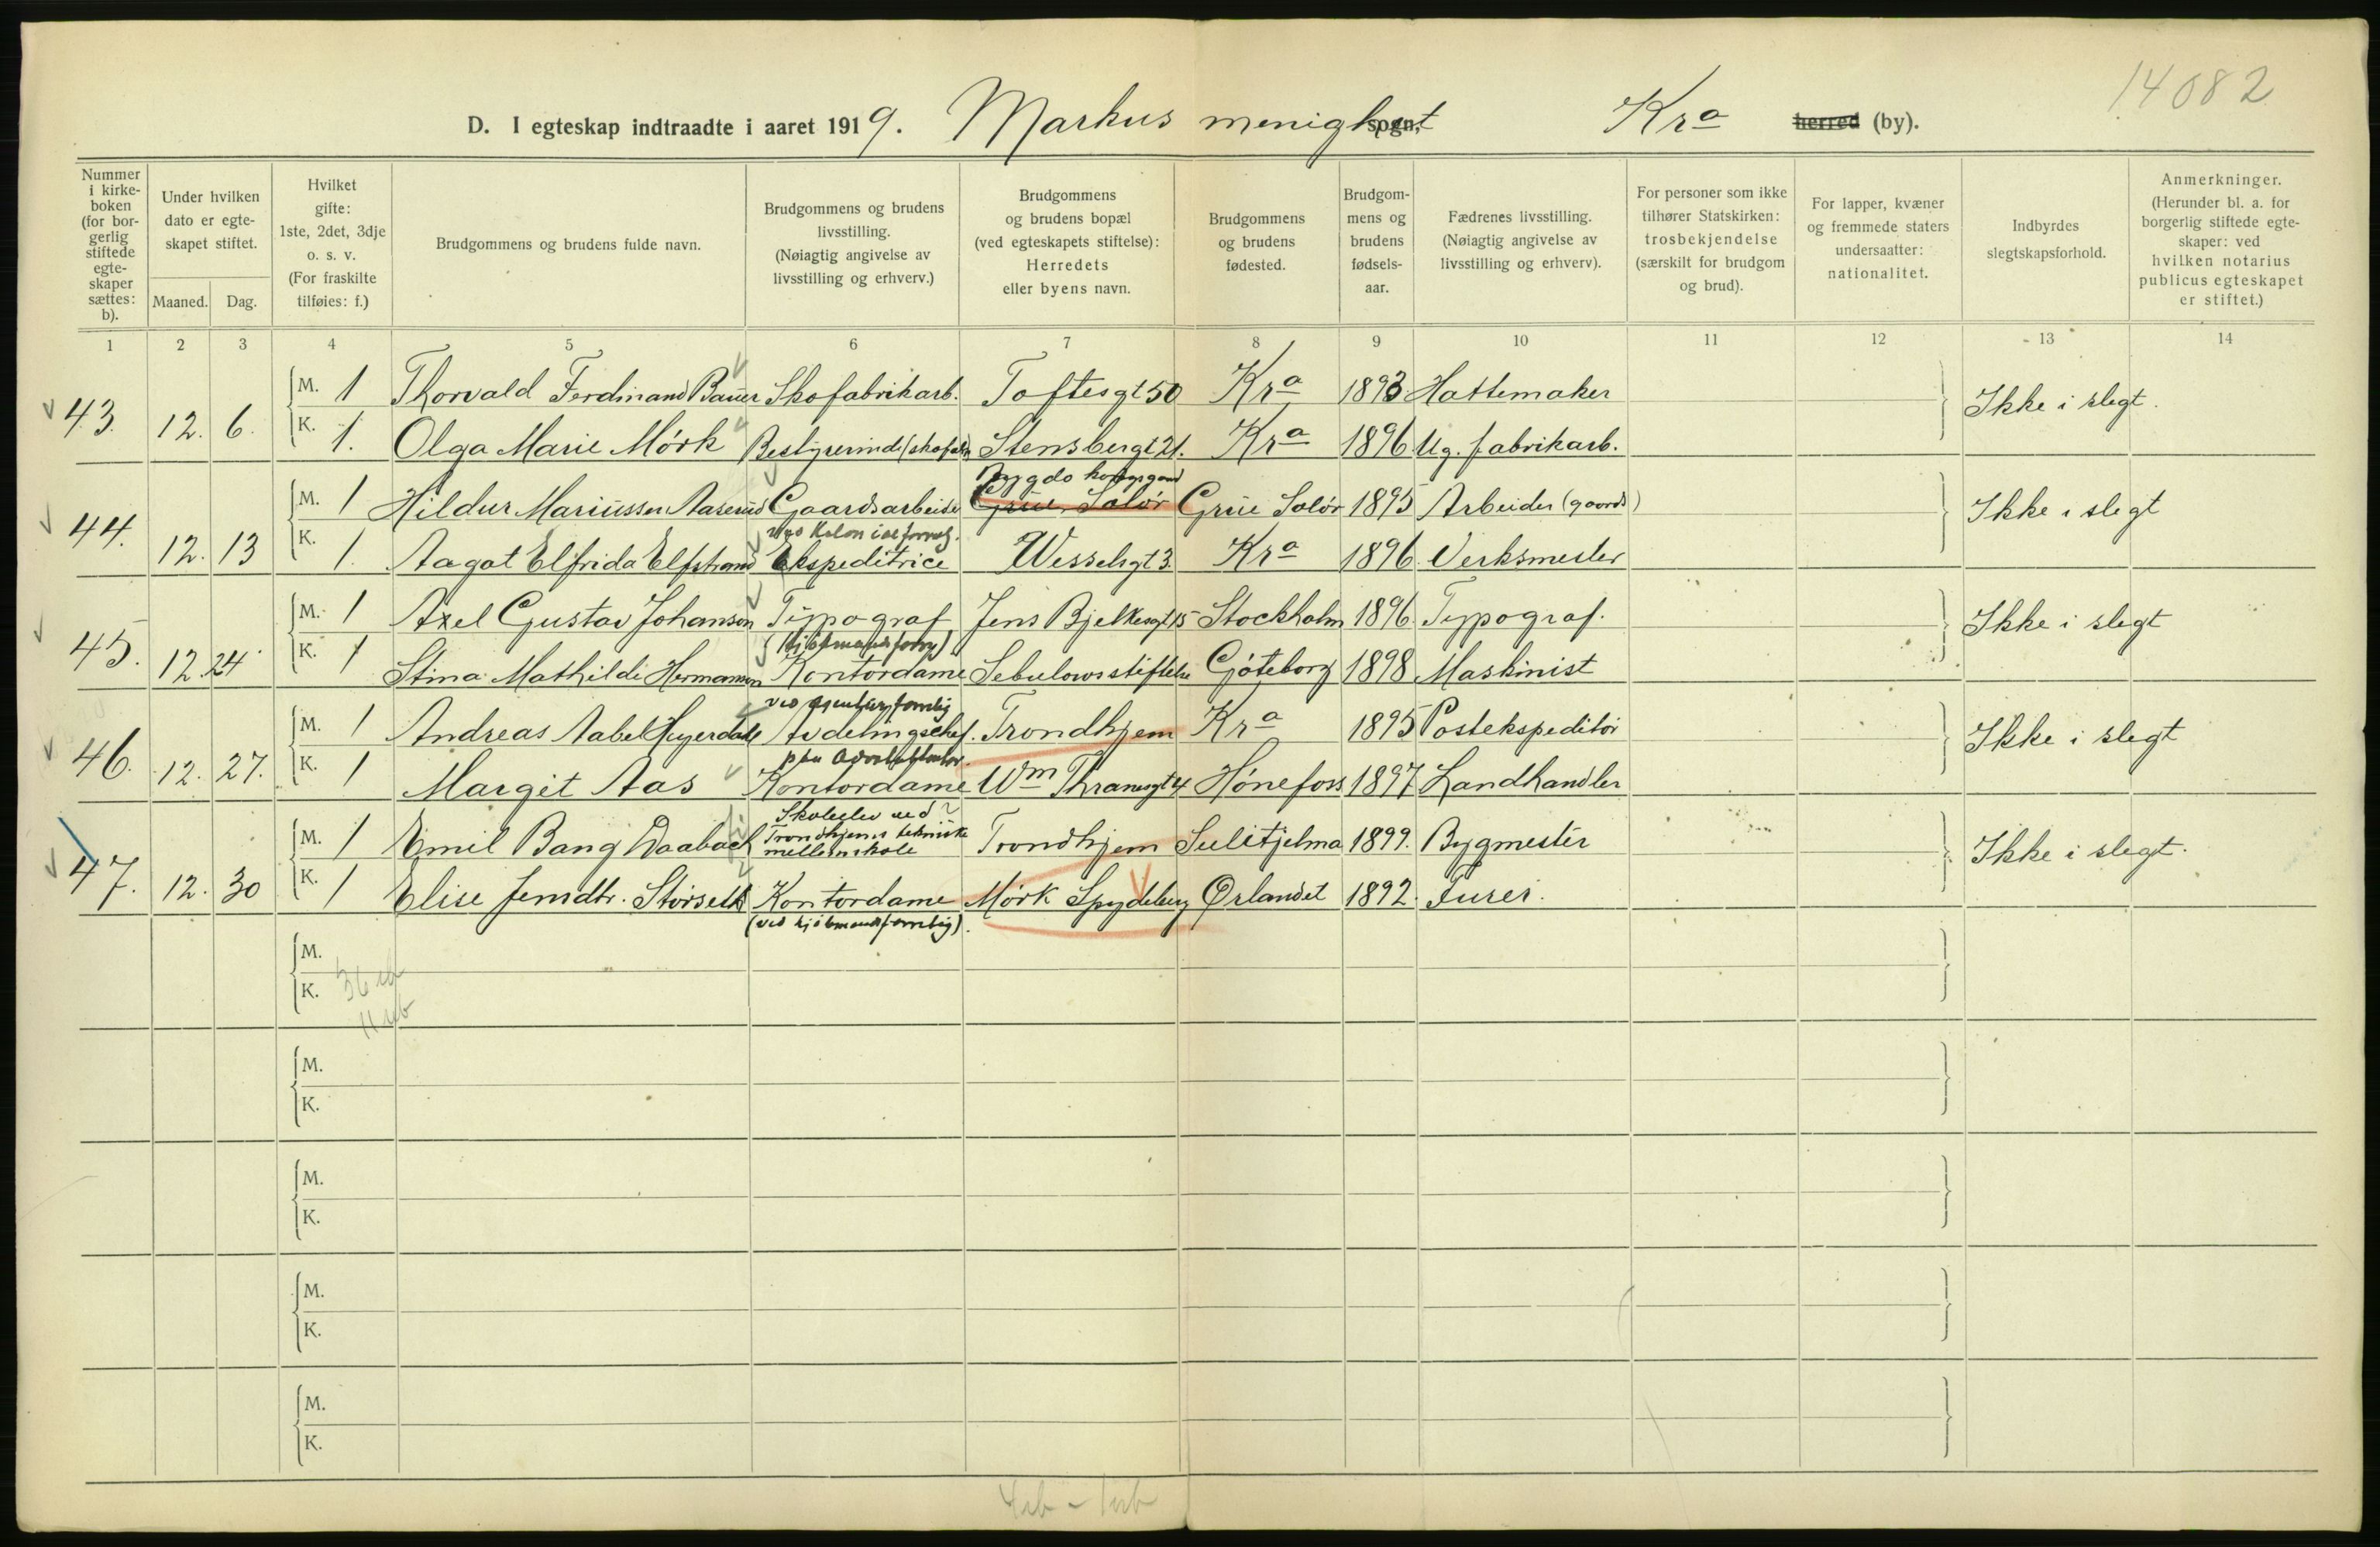 14082
D. I egteskap indtraadte i aaret 1919. Markus menighet sogn, Kra herred (by).
Nummer i kirkeboken (for borgerlig stiftede egteskaper sættes: b).
Under hvilken dato er egteskapet stiftet.
Maaned. Dag.
Hvilket gifte: 1ste, 2det, 3dje o. s. v. (For fraskilte tilføies: f.)
Brudgommens og brudens fulde navn.
Brudgommens og brudens livsstilling. (Nøiagtig angivelse av livsstilling og erhverv.)
Brudgommens og brudens bopæl (ved egteskapets stiftelse): Herredets eller byens navn.
Brudgommens og brudens fødested.
Brudgommens og brudens fødselsaar.
Fædrenes livsstilling. (Nøiagtig angivelse av livsstilling og erhverv).
For personer som ikke tilhører Statskirken: trosbekjendelse (særskilt for brudgom og brud).
For lapper, kvæner og fremmede staters undersaatter: nationalitet.
Indbyrdes slegtskapsforhold.
Anmerkninger. (Herunder bl. a. for borgerlig stiftede egteskaper: ved hvilken notarius publicus egteskapet er stiftet.)
1 2 3 4 5 6 7 8 9 10 11 12 13 14
43. 12. 6. M. 1 Thorvald Ferdinand Bauer Skofabrikarb. Toftesgt 50 Kra 1893 Hattemaker Ikke i slegt.
K. 1. Olga Marie Mørk Bestyrerinde (skofabr) Stensbergt 21. Kra 1896 Ug. fabrikarb.
Bygdø kongsgaard
44. 12. 13 M. 1 Hildur Mariussen Aaserud Gaardsarbeider Grue Solør Grue Solør 1895 Arbeider (gaards) Ikke i slegt
ved Kolonialforretg.
K. 1. Aagot Elfrida Elfstrand Ekspeditrice Wesselsgt 3. Kra 1896 Verksmester
45. 12. 24 M. 1 Axel Gustav Johanson Typograf Jens Bjelkesgt 15 Stockholm 1896 Typograf. Ikke i slegt
(Kjøbmandsforrg)
K. 1 Stina Mathilde Hermansen Kontordame Sebulowsstiftelse Gøteborg 1898 Maskinist
ved agenturforretnig
46. 12. 27. M. 1 Andreas Aabel Heyerdahl Avdelingschef. Trondhjem Kra 1895 Postekspeditør Ikke i slegt
paa Advokatkontor.
K. 1 Margit Aas Kontordame Wm Thranesgt 4 Hønefoss 1897 Landhandler
Skoleelev ved
Trondhjems tekniske
mellemskole
47. 12. 30 M. 1 Emil Bang Waaback Trondhjem Sulitjelma 1899. Bygmester Ikke i slegt.
K. 1 Elise Jensdtr. Størseth Kontordame Mørk Spydeberg Ørlandet 1892. Furer.
(ved kjøbmandsforretnig).
M.
K.
M.
K.
M.
K.
M.
K.
M.
K.